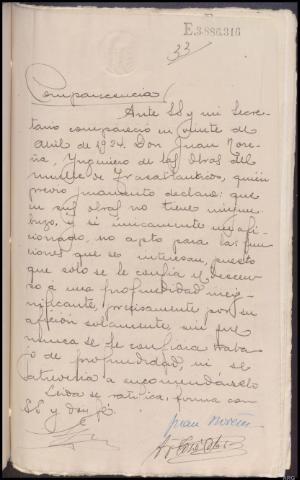 E.3.886.316
33
Comparecencia/
Ante SS y mi Secre-
tario compareció en veinte de
Abril de 1924. Don Juan More-
ña, Yngeniero de las Obras del
muelle de Trasatlanticos, quien
previo juramento declara: que
en sus obras no tiene ningun
buzo, y si unicamente un afi-
cionado, no apto para las fun-
ciones que se interesan, puesto
que solo se le confia el descen-
so a una profundidad insig-
nificante, precisamente por su
afición solamente sin que
nunca se le confiara traba-
jo de profundidad, ni se
atreveria a encomendárselo
Leida se ratifica, firma con
SS y doy fé.
Juan Moreña